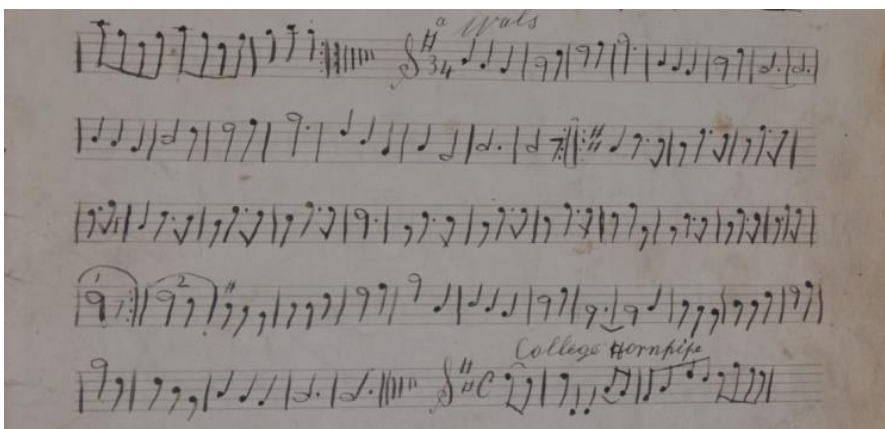 a Wals
3 4
1 2
College Hornpipe
C